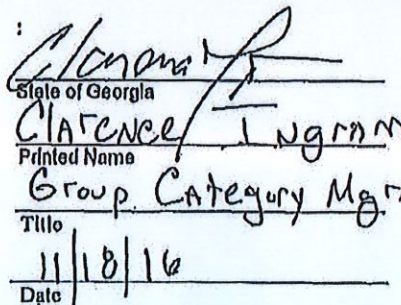 :
State of Georgia
Clarence Ingram
Printed Name
Group Category Mgr
Title
11/18/16
Date